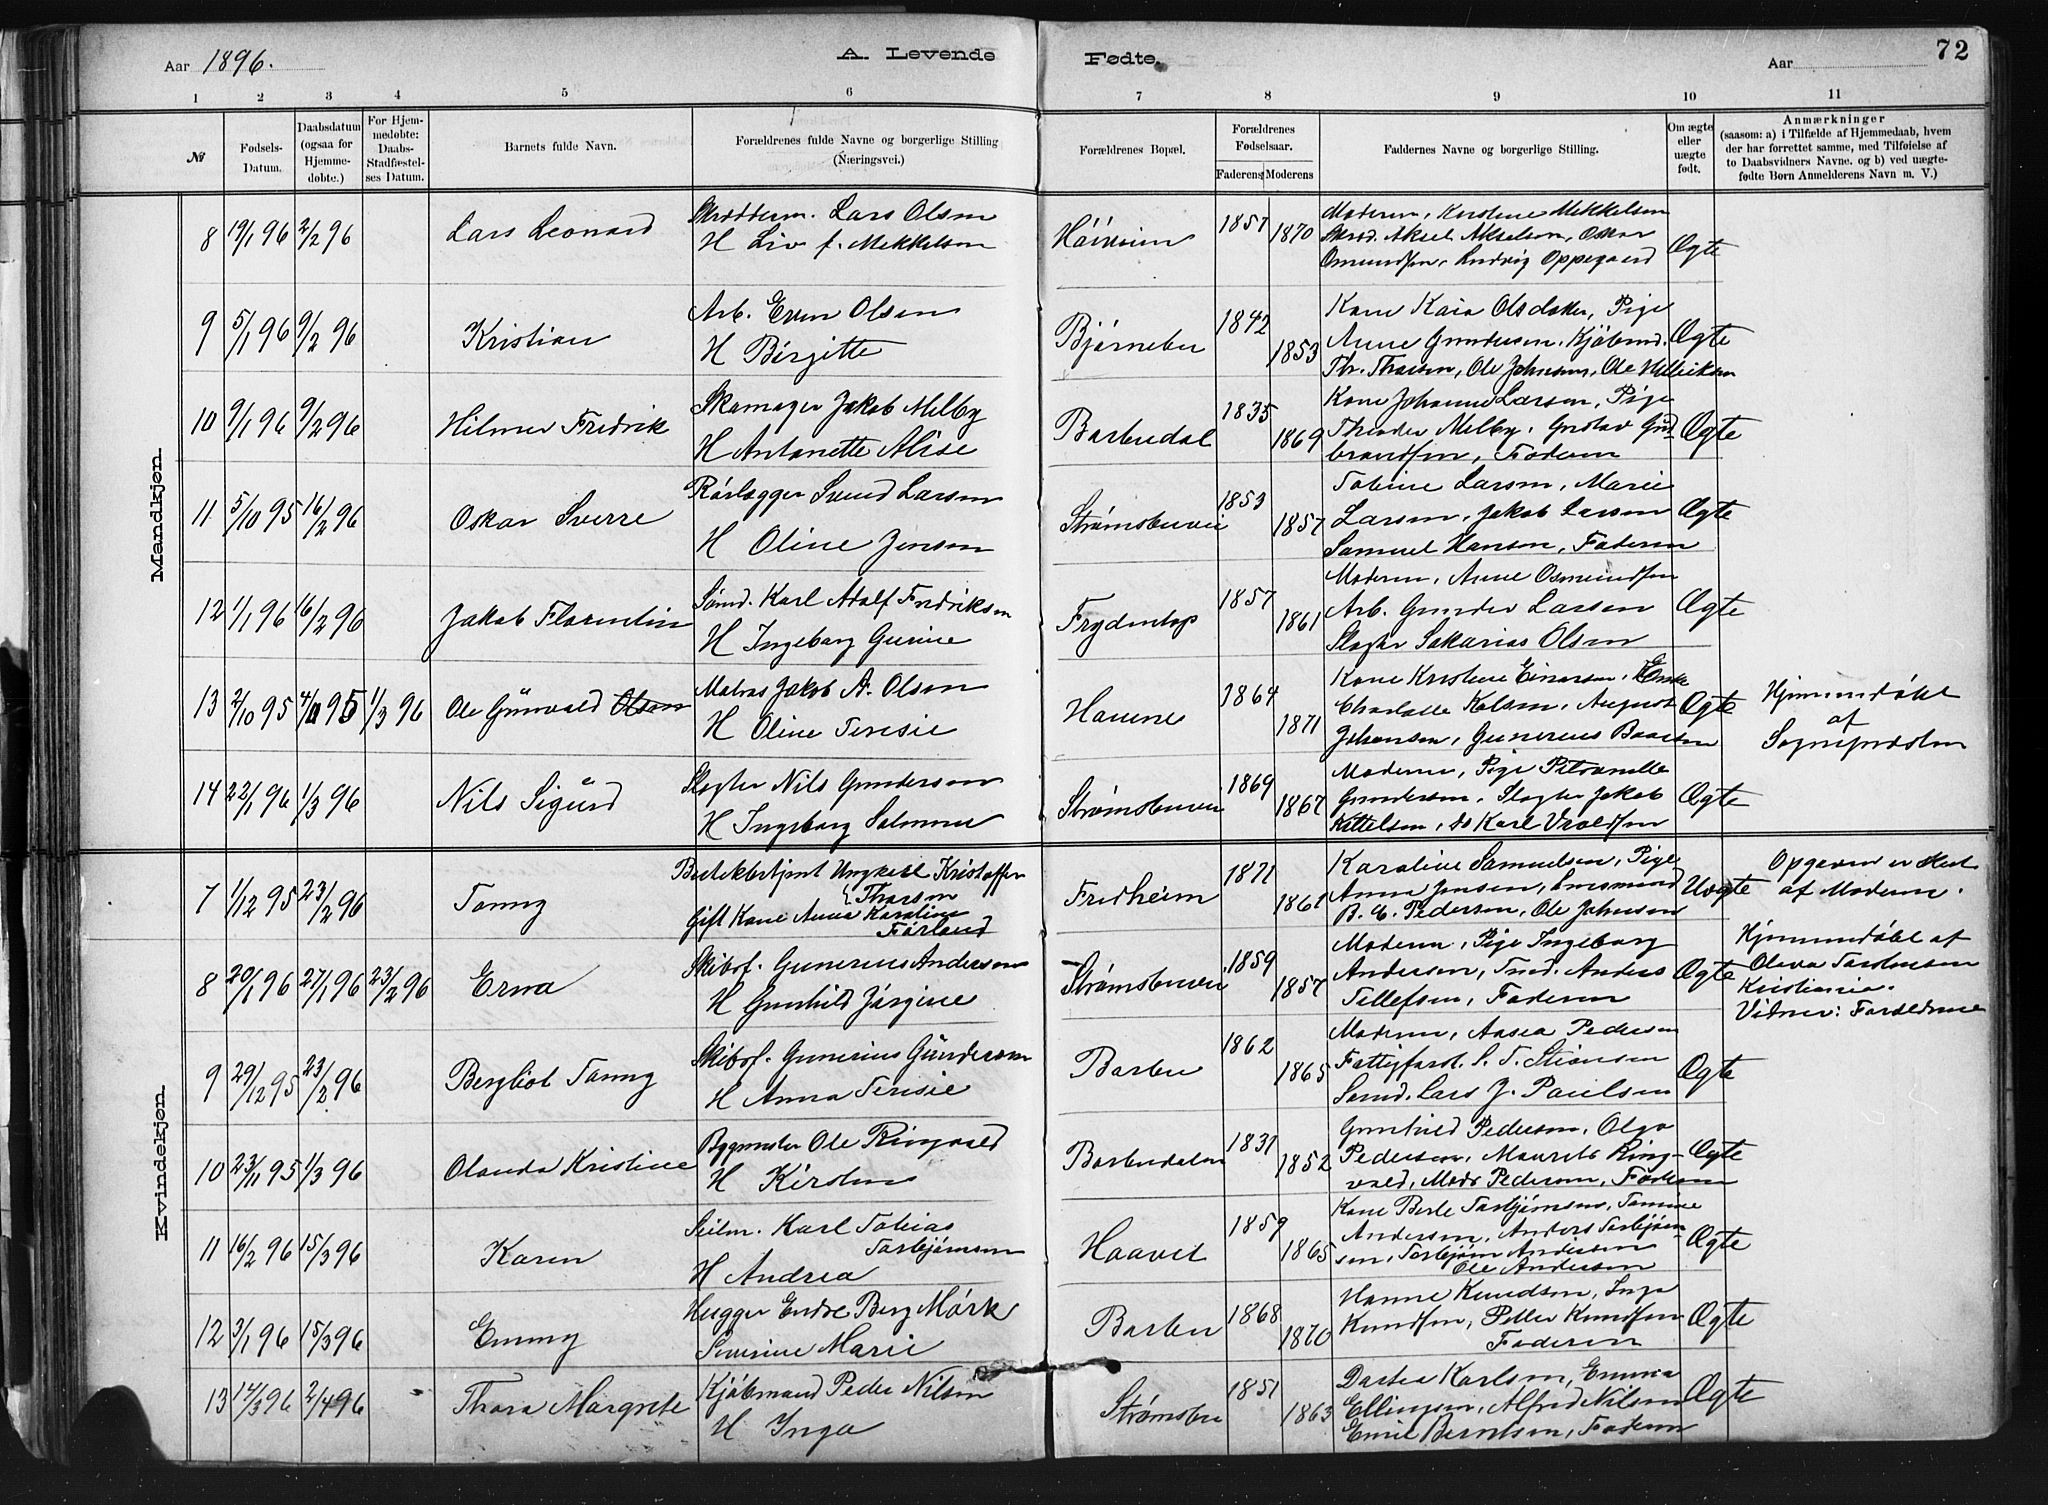 Aar 1896. A. Levende Fødte. Aar 72
1 2 3 4 5 6 7 8 9 10 11
№ Fødsels-Datum. Daabsdatum (ogsaa for Hjemmedøbte.) For Hjemmedøbte: Daabs-Stadfæstelses Datum. Barnets fulde Navn. Forældrenes fulde Navne og borgerlige Stilling (Næringsvei.) Forældrenes Bopæl. Forældrenes Fødselsaar. Faderens Moderens Faddernes Navne og borgerlige Stilling. Om ægte eller uægte født. Anmærkninger (saasom: a) i Tilfælde af Hjemmedaab, hvem der har forrettet samme, med Tilføielse af to Daabsvidners Navne. og b) ved uægtefødte Børn Anmelderens Navn m. V.)
Mandkjøn.
8 19/1 96 2/2 96 Lars Leonard Skrædderm. Lars Olsen 1857 Moderen, Kirstine Mikkelsen
H Liv f. Mekkelsen 1870 Skræd. Aksel Akselsen, Oskar Ægte
Osmundsen, Ludvig Oppegaard
9 5/1 96 9/2 96 Kristian Arb. Even Olsen Bjørnebu 1842 Kone Kaia Olsdater, Pige
H Birgitte 1853 Anne Gundersen, Kjøbmd. Ægte
Ole Johnsen, Ole
10 9/1 96 9/2 96 Hilmer Fredrik Skomager Jakob Melby Barbudal 1835 Kone Johanne Larsen, Pige
H Antonette Alise 1869 Theodor Melby, Gustav Gud- Ægte
brandsen, Faderen
11 5/10 95 16/2 96 Oskar Sverre Rørlægger Svend Larsen Strømsbuvei 1853 Tobine Larsen, Marie
H Oline Jensen 1857 Larsen, Jakob Larsen Ægte
Samuel Hansen, Faderen
12 1/1 96 16/2 96 Jakob Florentin Sømd. Karl Adolf Fredriksen Frydentop 1857 Moderen, Anne Osmundsen
H Ingeborg Gurine 1861 Arb. Gunder Larsen Ægte
Slagter Sakarias Olsen
13 2/10 95 4/10 95 1/3 96 Ole Günvald Olsen Matros Jakob A. Olsen Havene 1864 Kone Kristine Einarsen, Enke
H Oline Teresie 1871 Charlotte Kolsen, August Ægte Hjemmedøbt
Johansen, Gunerius af
Sognepræsten
14 22/1 96 1/3 96 Nils Sigurd Slagter Nils Gundersen Strømsbuvei 1869 Moderen, Pige Petronelle
H Ingeborg 1867 Gundersen, Slagter Jakob Ægte
Kittelsen, do Karl Vraldsen
Kvindekjøn.
7 1/12 95 23/2 96 Tonny Kristoffer Fredheim 1871 Karoline Samuelsen, Pige Opgaven er sket
Gift Kone Anna Karoline Førland 1861 Anna Jensen, Uægte af Moderen.
Pedersen, Ole Johnsen
8 20/1 96 27/1 96 23/2 96 Erna Skibsf. Gunerius Andersen Strømsbuvei 1859 Moderen, Pige Ingeborg Hjemmedøbt af
H Gunhild Jørgine 1857 Andersen, Anders Ægte Oleva Torstensen
Tellefsen, Faderen Kristiania.
Vidner: Forældrene
9 29/12 95 23/2 96 Bergliot Tonny Skibsf. Gunerius Gündersen Barbu 1862 Moderen, Aasea Pedersen
H Anna Terisie 1865 Fattigforst. S. T. Ægte
Sømd. Lars J. Paulsen
10 23/11 95 1/3 96 Olauda Kristine Bygmester Ole Ringvold Barbudalen 1831 Gunhild Pedersen, Olga
H Kirsten 1852 Pedersen, Maurits Ring- Ægte
vold, Mads Pedersen, Faderen
11 16/2 96 15/3 96 Karen Seilm. Karl Tobias Torbjørnsen Haavet 1859 Kone Berte Torbjørnsen, Tomine
H Andrea 1865 Andersen, Anders Torbjørn- Ægte
sen, Torbjørn Andersen
Ole Andersen
12 3/1 96 15/3 96 Emmy Hugger Endre Berg Mørk Barbu 1868 Hanne Knudsen, Inga
Severine Marie 1870 Knudsen, Peder Knudsen Ægte
Faderen
13 14/3 96 2/4 96 Thora Margrete Kjøbmand Peder Nilsen Strømsbu 1851 Dortea Karlsen, Emma
H Inga 1863 Ellingsen, Alfred Nilsen Ægte
Emil Berntsen, Faderen